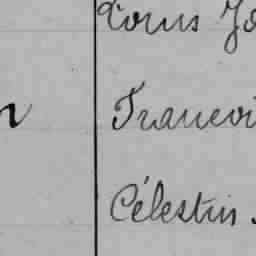 Louis Jo
n Francoi
Célestin